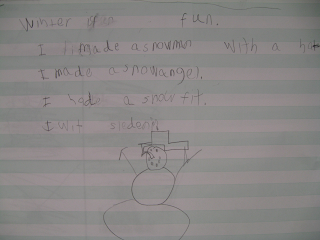 Winter is fun.
I made a snowmon With a hat
I made a snowangel.
I had a snow fit.
I wit sledeih